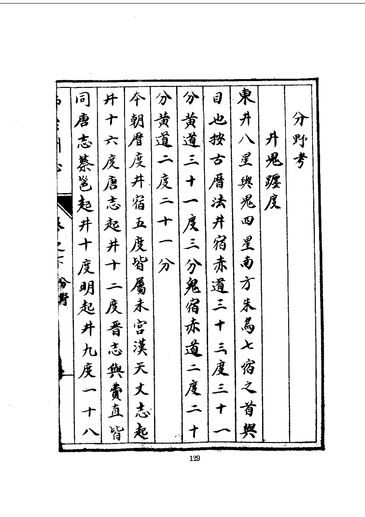 分野考
井鬼躔度
東井八星與鬼四星南方朱鳥七宿之首與
目也按古曆法井宿赤道三十三度三十一
分黃道三十一度三分鬼宿赤道二度二十
分黃道二度二十一分
今朝曆度井宿五度皆屬未宮漢天文志起
井十六度唐志起井十二度晉志與費直皆
同唐志蔡邕起井十度明起井九度一十八
分野
129